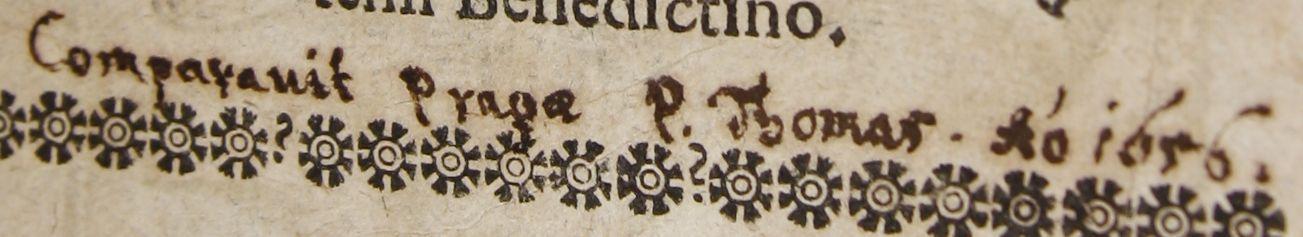 Benedictino.
Comparauit Pragæ P. Thomas. Aō 1656.